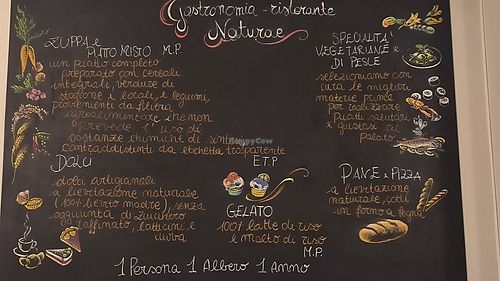 Gastronomia - ristorante
Naturae
ZUPPA e
PIATTO MISTO M.P.
un piatto completo
preparato con cereali
integrali, verdure di
stagione e locali e legumi,
provenienti da filiera
agroalimentare che non
prevede l'uso di
sostanze chimiche di sintesi
contraddistinti da etichetta trasparente
E.T.P
SPECIALITA'
VEGETARIANE e
DI PESCE
selezioniamo con
cura le migliori
materie prime
per realizzare
piatti salutari
e gustosi al
palato
DOLCI
dolci artigianali
a lievitazione naturale
(100% lievito madre), senza
aggiunta di zucchero
raffinato, latticini e
uova
GELATO
100% latte di riso
e malto di riso
M.P.
PANE e PIZZA
a lievitazione
naturale, cotti
in forno a legna
1 Persona 1 Albero 1 Anno
HappyCow